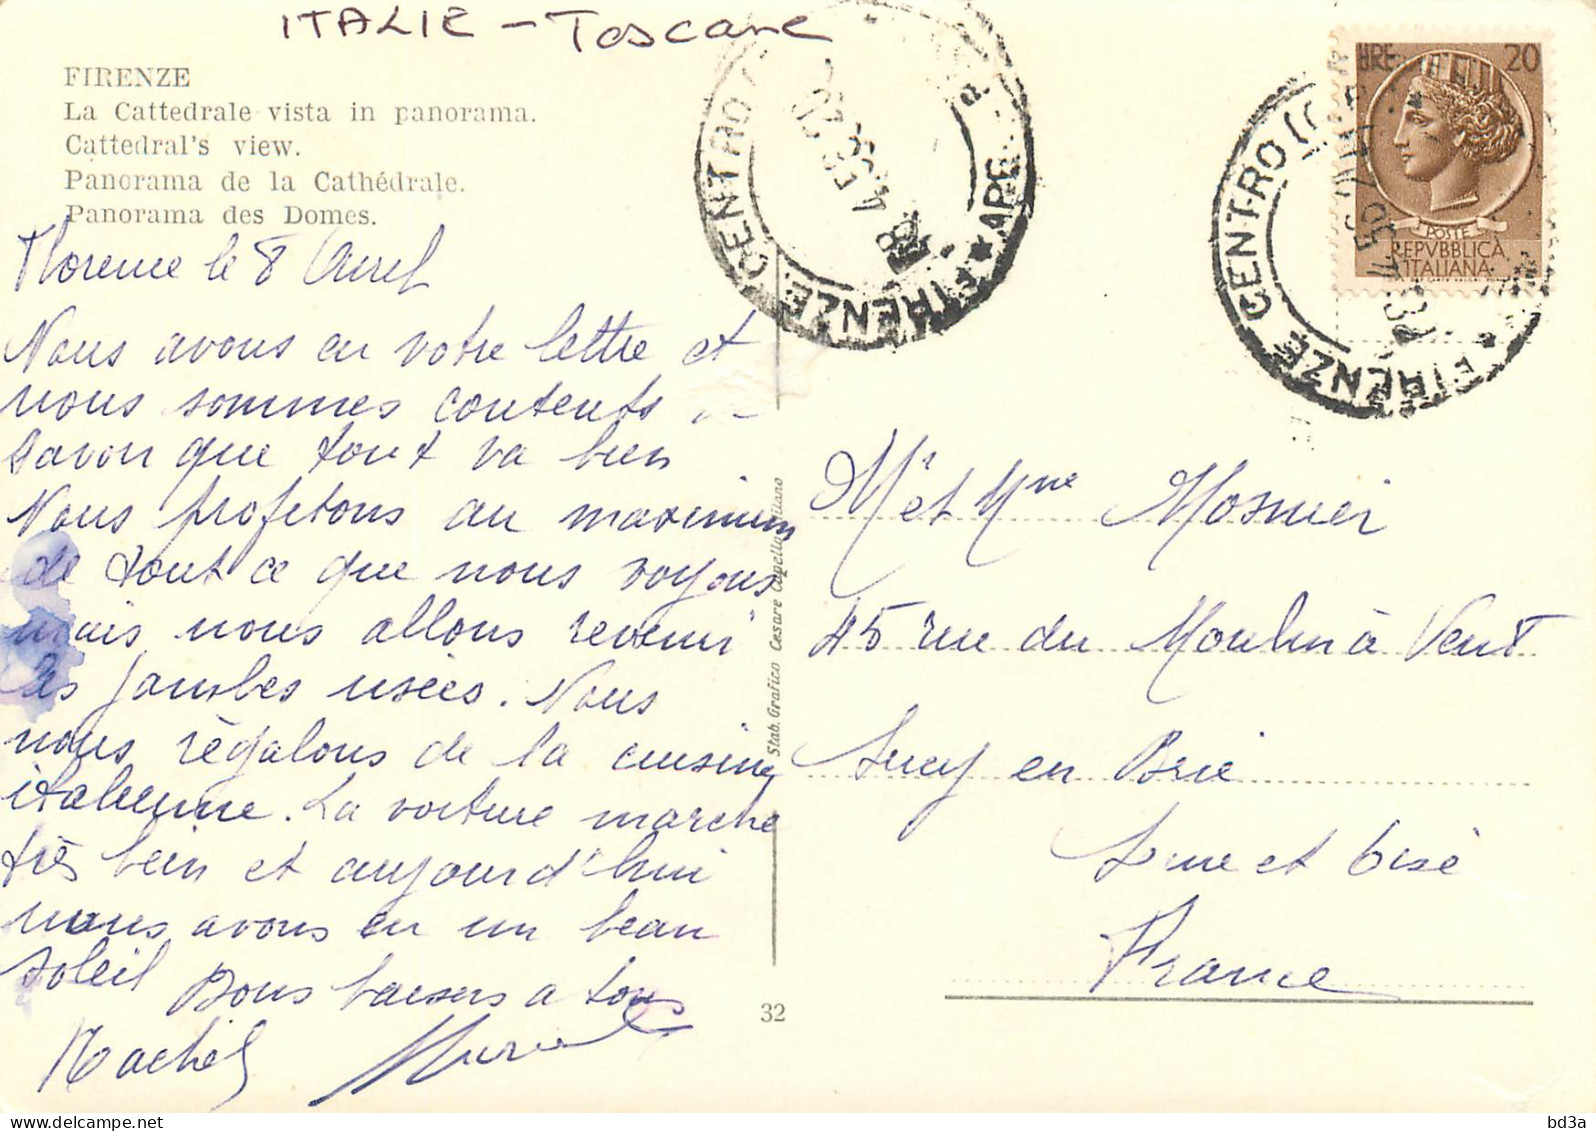 ITALIE - Toscane
FIRENZE
La Cattedrale vista in panorama.
Cattedral's view.
Panorama de la Cathédrale.
Panorama des Domes.
Florence le 8 Avril
Nous avons eu votre lettre et
nous sommes contents
savoir que tout va bien
Nous profitons au maximum
de tout ce que nous voyons
mais nous allons revenir
les jambes usées. Nous
nous régalons de la cuisine
italienne. La voiture marche
très bien et aujourd'hui
nous avons eu un beau
soleil Bons baisers a tous
Rachel
Stab. Grafico Cesare Capello Milano
32
FIRENZE CENTRO
LIRE 20
POSTE
REPVBBLICA
ITALIANA
FIRENZE CENTRO
Mr et Mme Mosnier
45 rue du Moulin à Vent
Sucy en Brie
Seine et Oise
France
bd3a